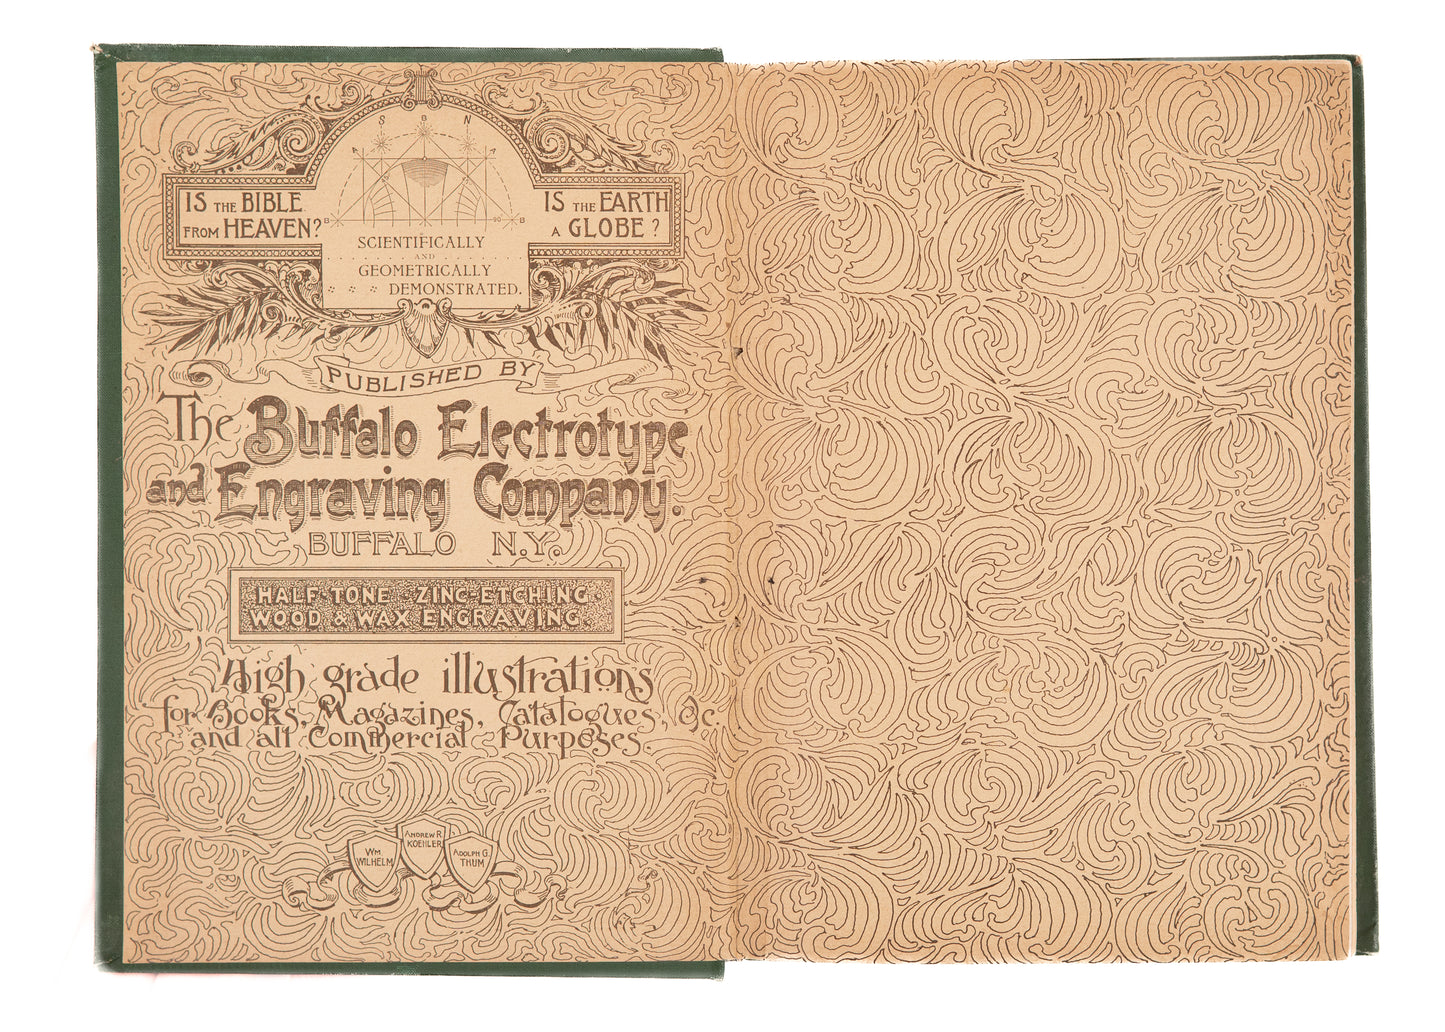 S B N
IS THE BIBLE
FROM HEAVEN?
IS THE EARTH
A GLOBE?
B 90 B
SCIENTIFICALLY
AND
GEOMETRICALLY
DEMONSTRATED.
PUBLISHED BY
The Buffalo Electrotype
and Engraving Company.
BUFFALO N.Y.
HALF-TONE · ZINC-ETCHING ·
WOOD & WAX ENGRAVING.
High grade illustrations
for Books, Magazines, Catalogues, &c.
and all Commercial Purposes.
WM. WILHELM
ANDREW R. KOEHLER
ADOLPH G. THUM